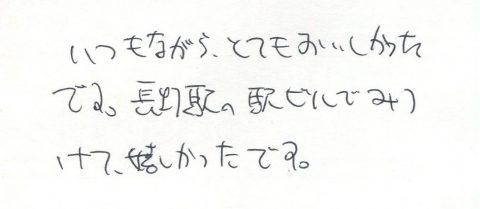 いつもながら、とてもおいしかった
です。長野駅の駅ビルでみつ
けて、嬉しかったです。